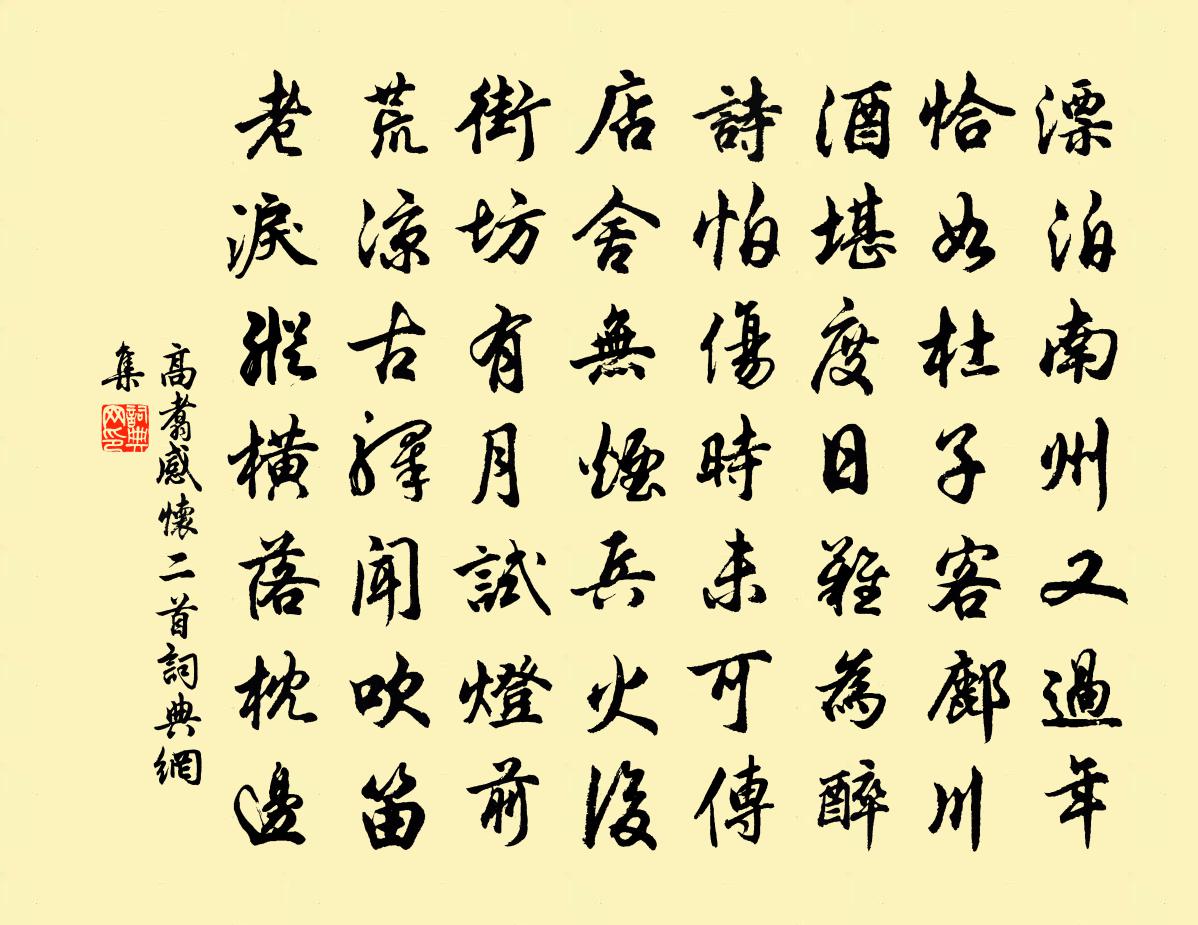 漂泊南州又過年
恰如杜子客鄜川
酒堪度日難為醉
詩怕傷時未可傳
店舍無煙兵火後
街坊有月試燈前
荒涼古驛聞吹笛
老淚縱橫落枕邊
高翥感懷二首詞典網
集
詞典
网印